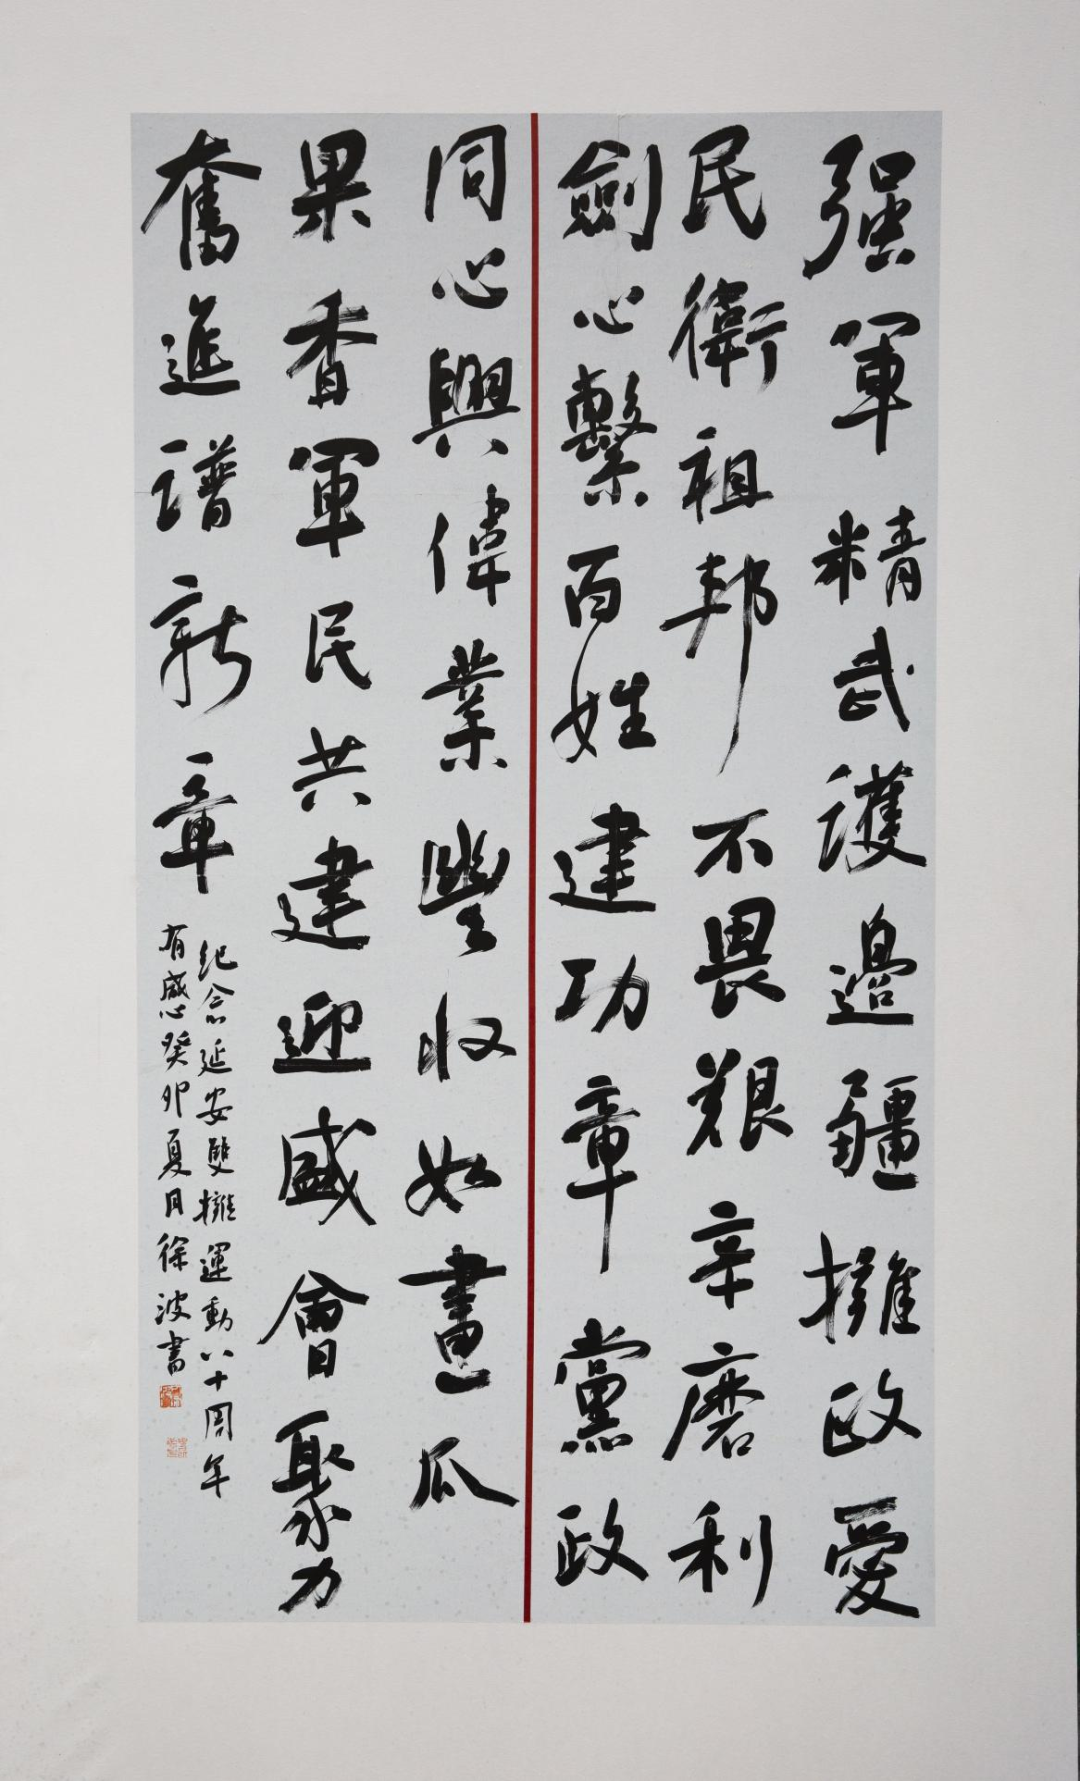 强軍精武護邊疆擁政愛
民衛祖邦不畏艱辛磨利
劍心繫百姓建功章黨政
同心興偉業豐收如畫瓜
果香軍民共建迎盛會聚力
奮進譜新章
紀念延安雙擁運動八十周年
有感癸卯夏月徐波書